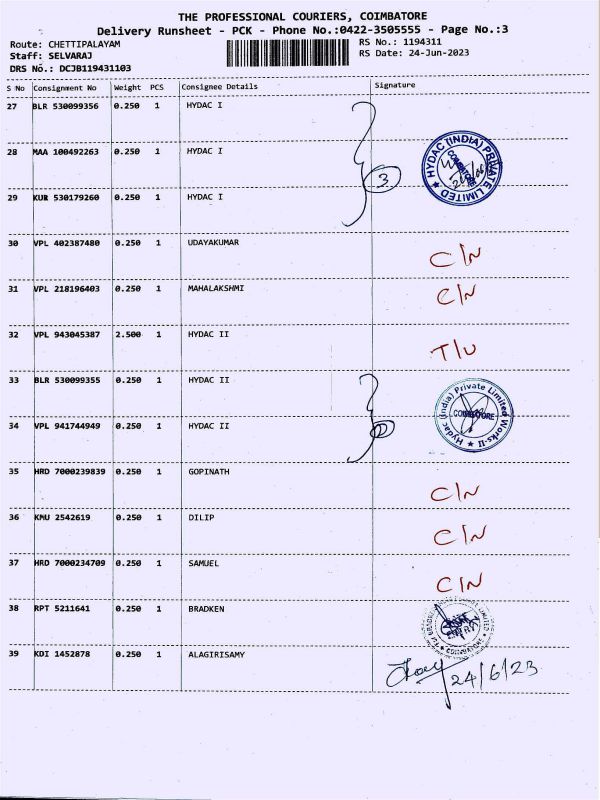 THE PROFESSIONAL COURIERS, COIMBATORE
Delivery Runsheet - PCK - Phone No.:0422-3505555 - Page No.:3
Route: CHETTIPALAYAM RS No.: 1194311
Staff: SELVARAJ RS Date: 24-Jun-2023
DRS No.: DCJB119431103
S No Consignment No Weight PCS Consignee Details Signature
27 BLR 530099356 0.250 1 HYDAC I
28 MAA 100492263 0.250 1 HYDAC I
HYDAC (INDIA) PRIVATE LIMITED ★ COIMBATORE
3
29 KUR 530179260 0.250 1 HYDAC I
30 VPL 402387480 0.250 1 UDAYAKUMAR C/N
31 VPL 218196403 0.250 1 MAHALAKSHMI C/N
32 VPL 943045387 2.500 1 HYDAC II T/U
33 BLR 530099355 0.250 1 HYDAC II
Hydac (India) Private Limited Works-II ★ COIMBATORE
34 VPL 941744949 0.250 1 HYDAC II
35 HRD 7000239839 0.250 1 GOPINATH C/N
36 KMU 2542619 0.250 1 DILIP C/N
37 HRD 7000234709 0.250 1 SAMUEL C/N
38 RPT 5211641 0.250 1 BRADKEN
39 KDI 1452878 0.250 1 ALAGIRISAMY 24/6/23